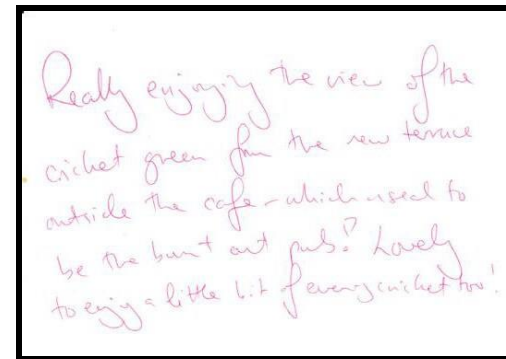 Really enjoying the view of the
cricket green from the new terrace
outside the cafe - which used to
be the burnt out pub? Lovely
to enjoy a little bit of evening cricket too!